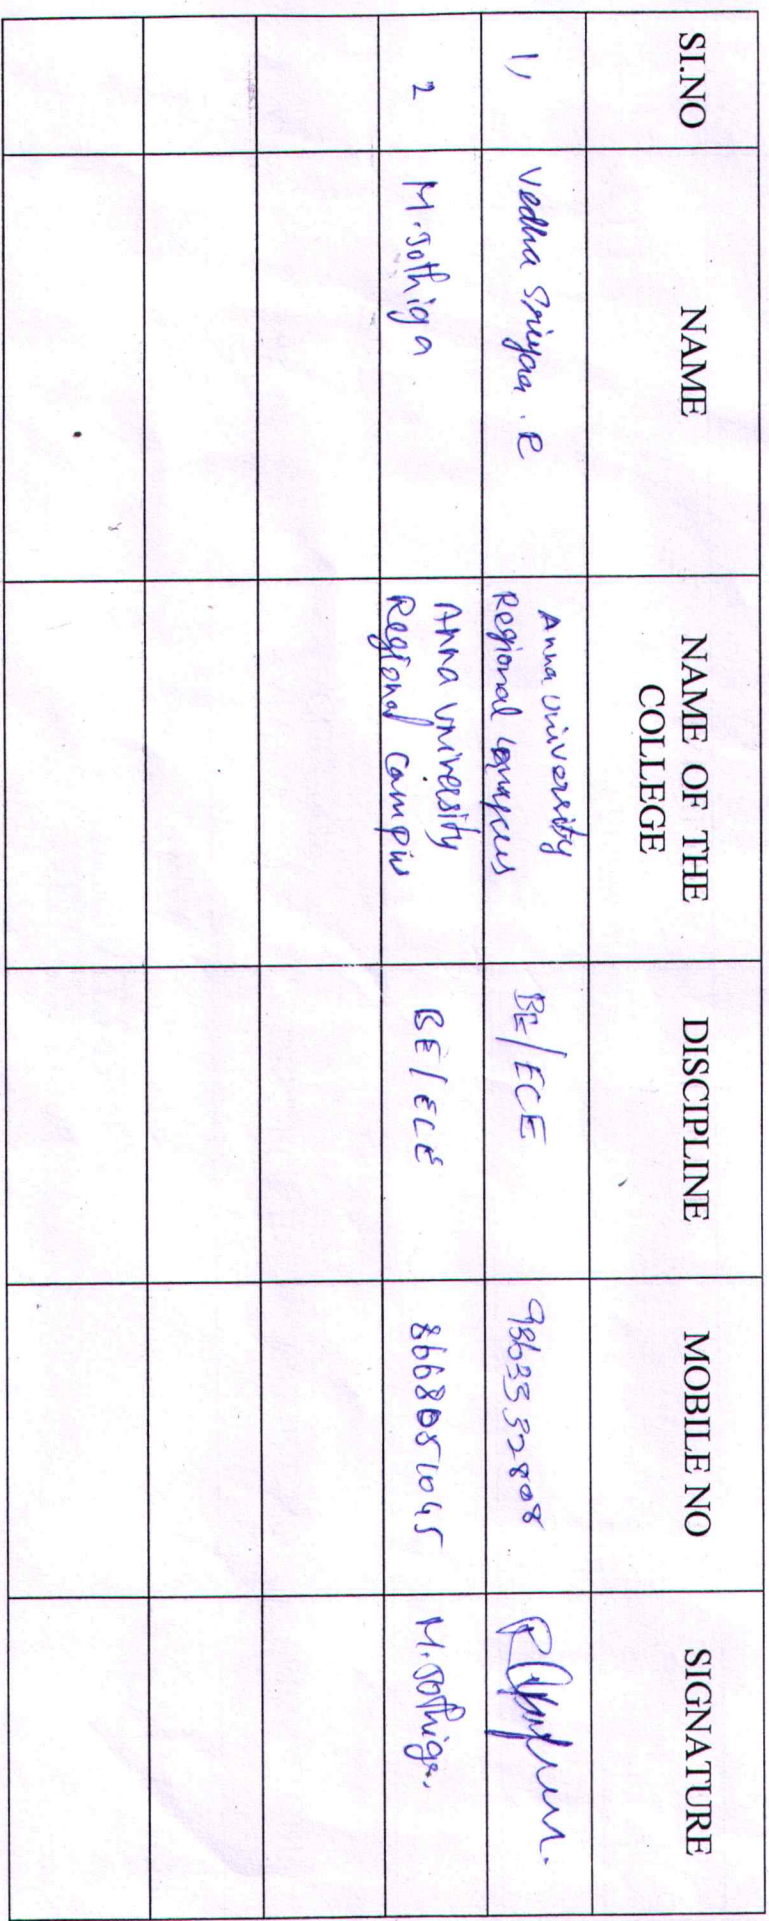 SI.NO
NAME
NAME OF THE
COLLEGE
DISCIPLINE
MOBILE NO
SIGNATURE
1,
Vedha Sriyaa . R
Anna University
Regional campus
BE/ECE
9363332808
2
M.Jothiga
Anna University
Regional campus
BE/ECE
M.Jothiga.